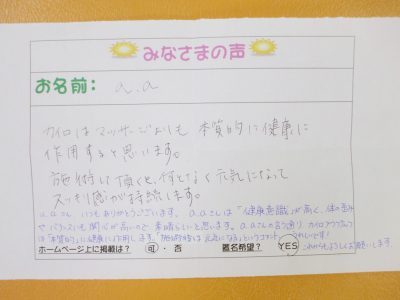 みなさまの声
お名前： a.a
カイロはマッサージよりも 本質的に健康に
作用すると思います。
施術して頂くと、何となく元気になって
スッキリ感が持続します。
a.aさん いつもありがとうございます。a.aさんは「健康意識」が高く、体の歪み
やバランスにも関心が高いので、素晴らしいと思います。a.aさんの言う通り、カイロプラクティック
は「本質的」に健康に作用します。「施術後は元気になる」というコメント、うれしいです！
ホームページ上に掲載は？ 可・否 匿名希望？ YES これからもよろしくお願いします